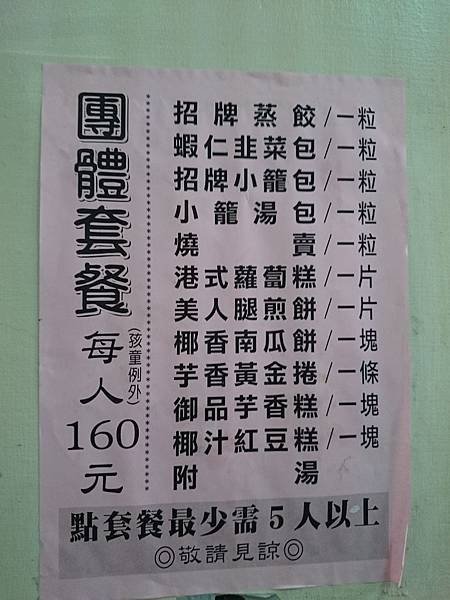 團體套餐
每人(孩童例外)
160
元
招牌蒸餃/一粒
蝦仁韭菜包/一粒
招牌小籠包/一粒
小籠湯包/一粒
燒賣/一粒
港式蘿蔔糕/一片
美人腿煎餅/一片
椰香南瓜餅/一塊
芋香黃金捲/一條
御品芋香糕/一塊
椰汁紅豆糕/一塊
附湯
點套餐最少需5人以上
◎敬請見諒◎